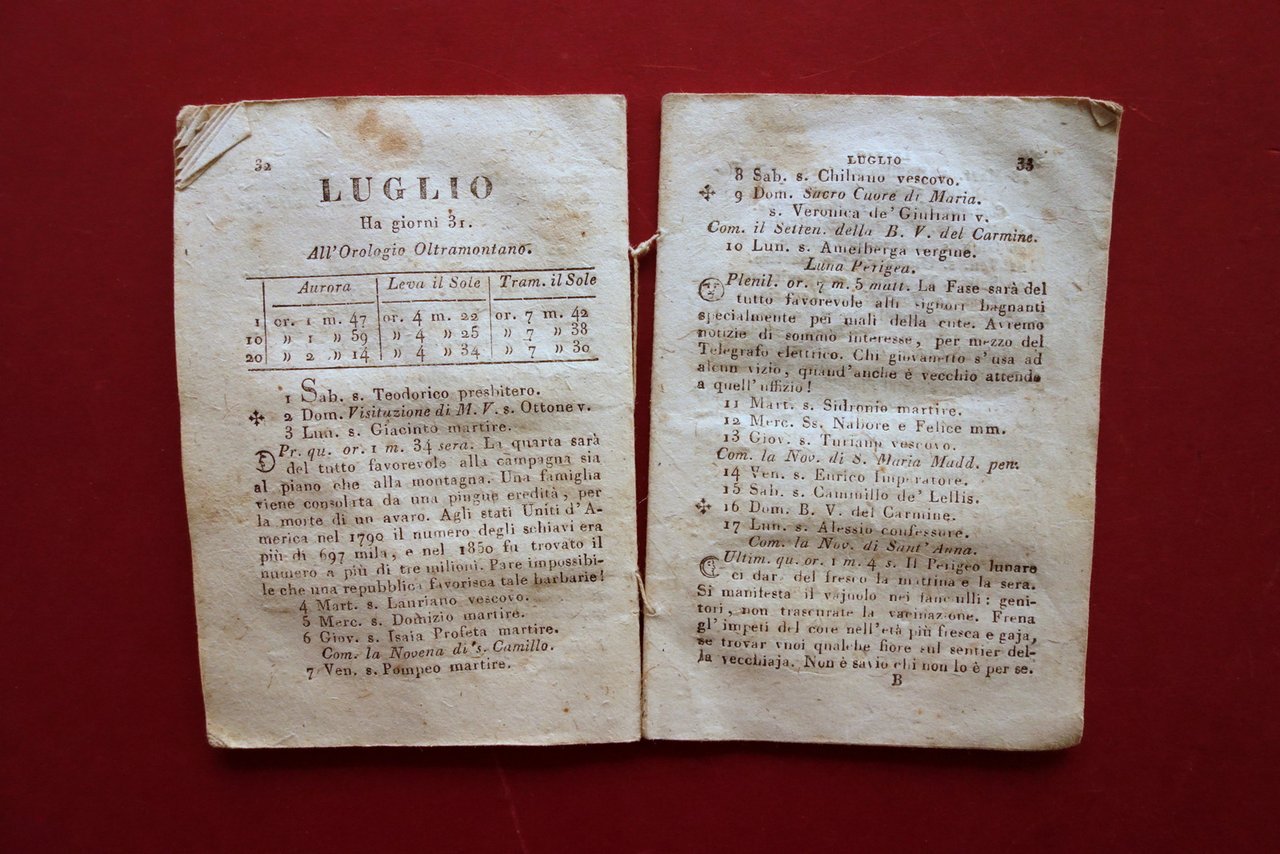 32
LUGLIO
Ha giorni 31.
All'Orologio Oltramontano.
Aurora | Leva il Sole | Tram. il Sole
1 | or. 1 m. 47 | or. 4 m. 22 | or. 7 m. 42
10 | » 1 » 59 | » 4 » 25 | » 7 » 38
20 | » 2 » 14 | » 4 » 34 | » 7 » 30
1 Sab. s. Teodorico presbitero.
✣ 2 Dom. Visituzione di M. V. s. Ottone v.
3 Lun. s. Giacinto martire.
Pr. qu. or. 1 m. 34 sera. La quarta sarà
del tutto favorevole alla campagna sia
al piano che alla montagna. Una famiglia
viene consolata da una pingue eredità, per
la morte di un avaro. Agli stati Uniti d'A-
merica nel 1790 il numero degli schiavi era
più di 697 mila, e nel 1850 fu trovato il
numero a più di tre milioni. Pare impossibi-
le che una repubblica favorisca tale barbarie!
4 Mart. s. Lauriano vescovo.
5 Merc. s. Domizio martire.
6 Giov. s. Isaia Profeta martire.
Com. la Novena di s. Camillo.
7 Ven. s. Pompeo martire.
LUGLIO 33
8 Sab. s. Chiliano vescovo.
✣ 9 Dom. Sacro Cuore di Maria.
s. Veronica de' Giuliani v.
Com. il Setten. della B. V. del Carmine.
10 Lun. s. Amelberga vergine.
Luna Perigea.
Plenil. or. 7 m. 5 matt. La Fase sarà del
tutto favorevole alli signori bagnanti
specialmente pei mali della cute. Avremo
notizie di sommo interesse, per mezzo del
Telegrafo elettrico. Chi giovanetto s'usa ad
alcun vizio, quand'anche è vecchio attende
a quell'uffizio!
11 Mart. s. Sidronio martire.
12 Merc. Ss. Nabore e Felice mm.
13 Giov. s. Turiano vescovo.
Com. la Nov. di S. Maria Madd. pen.
14 Ven. s. Enrico Imperatore.
15 Sab. s. Cammillo de' Lellis.
✣ 16 Dom. B. V. del Carmine.
17 Lun. s. Alessio confessore.
Com. la Nov. di Sant'Anna.
Ultim. qu. or. 1 m. 4 s. Il Perigeo lunare
ci darà del fresco la mattina e la sera.
Si manifesta il vajuolo nei fanciulli: geni-
tori, non trascurate la vacinazione. Frena
gl'impeti del core nell'età più fresca e gaja,
se trovar vuoi qualche fiore sul sentier del-
la vecchiaja. Non è savio chi non lo è per se.
B